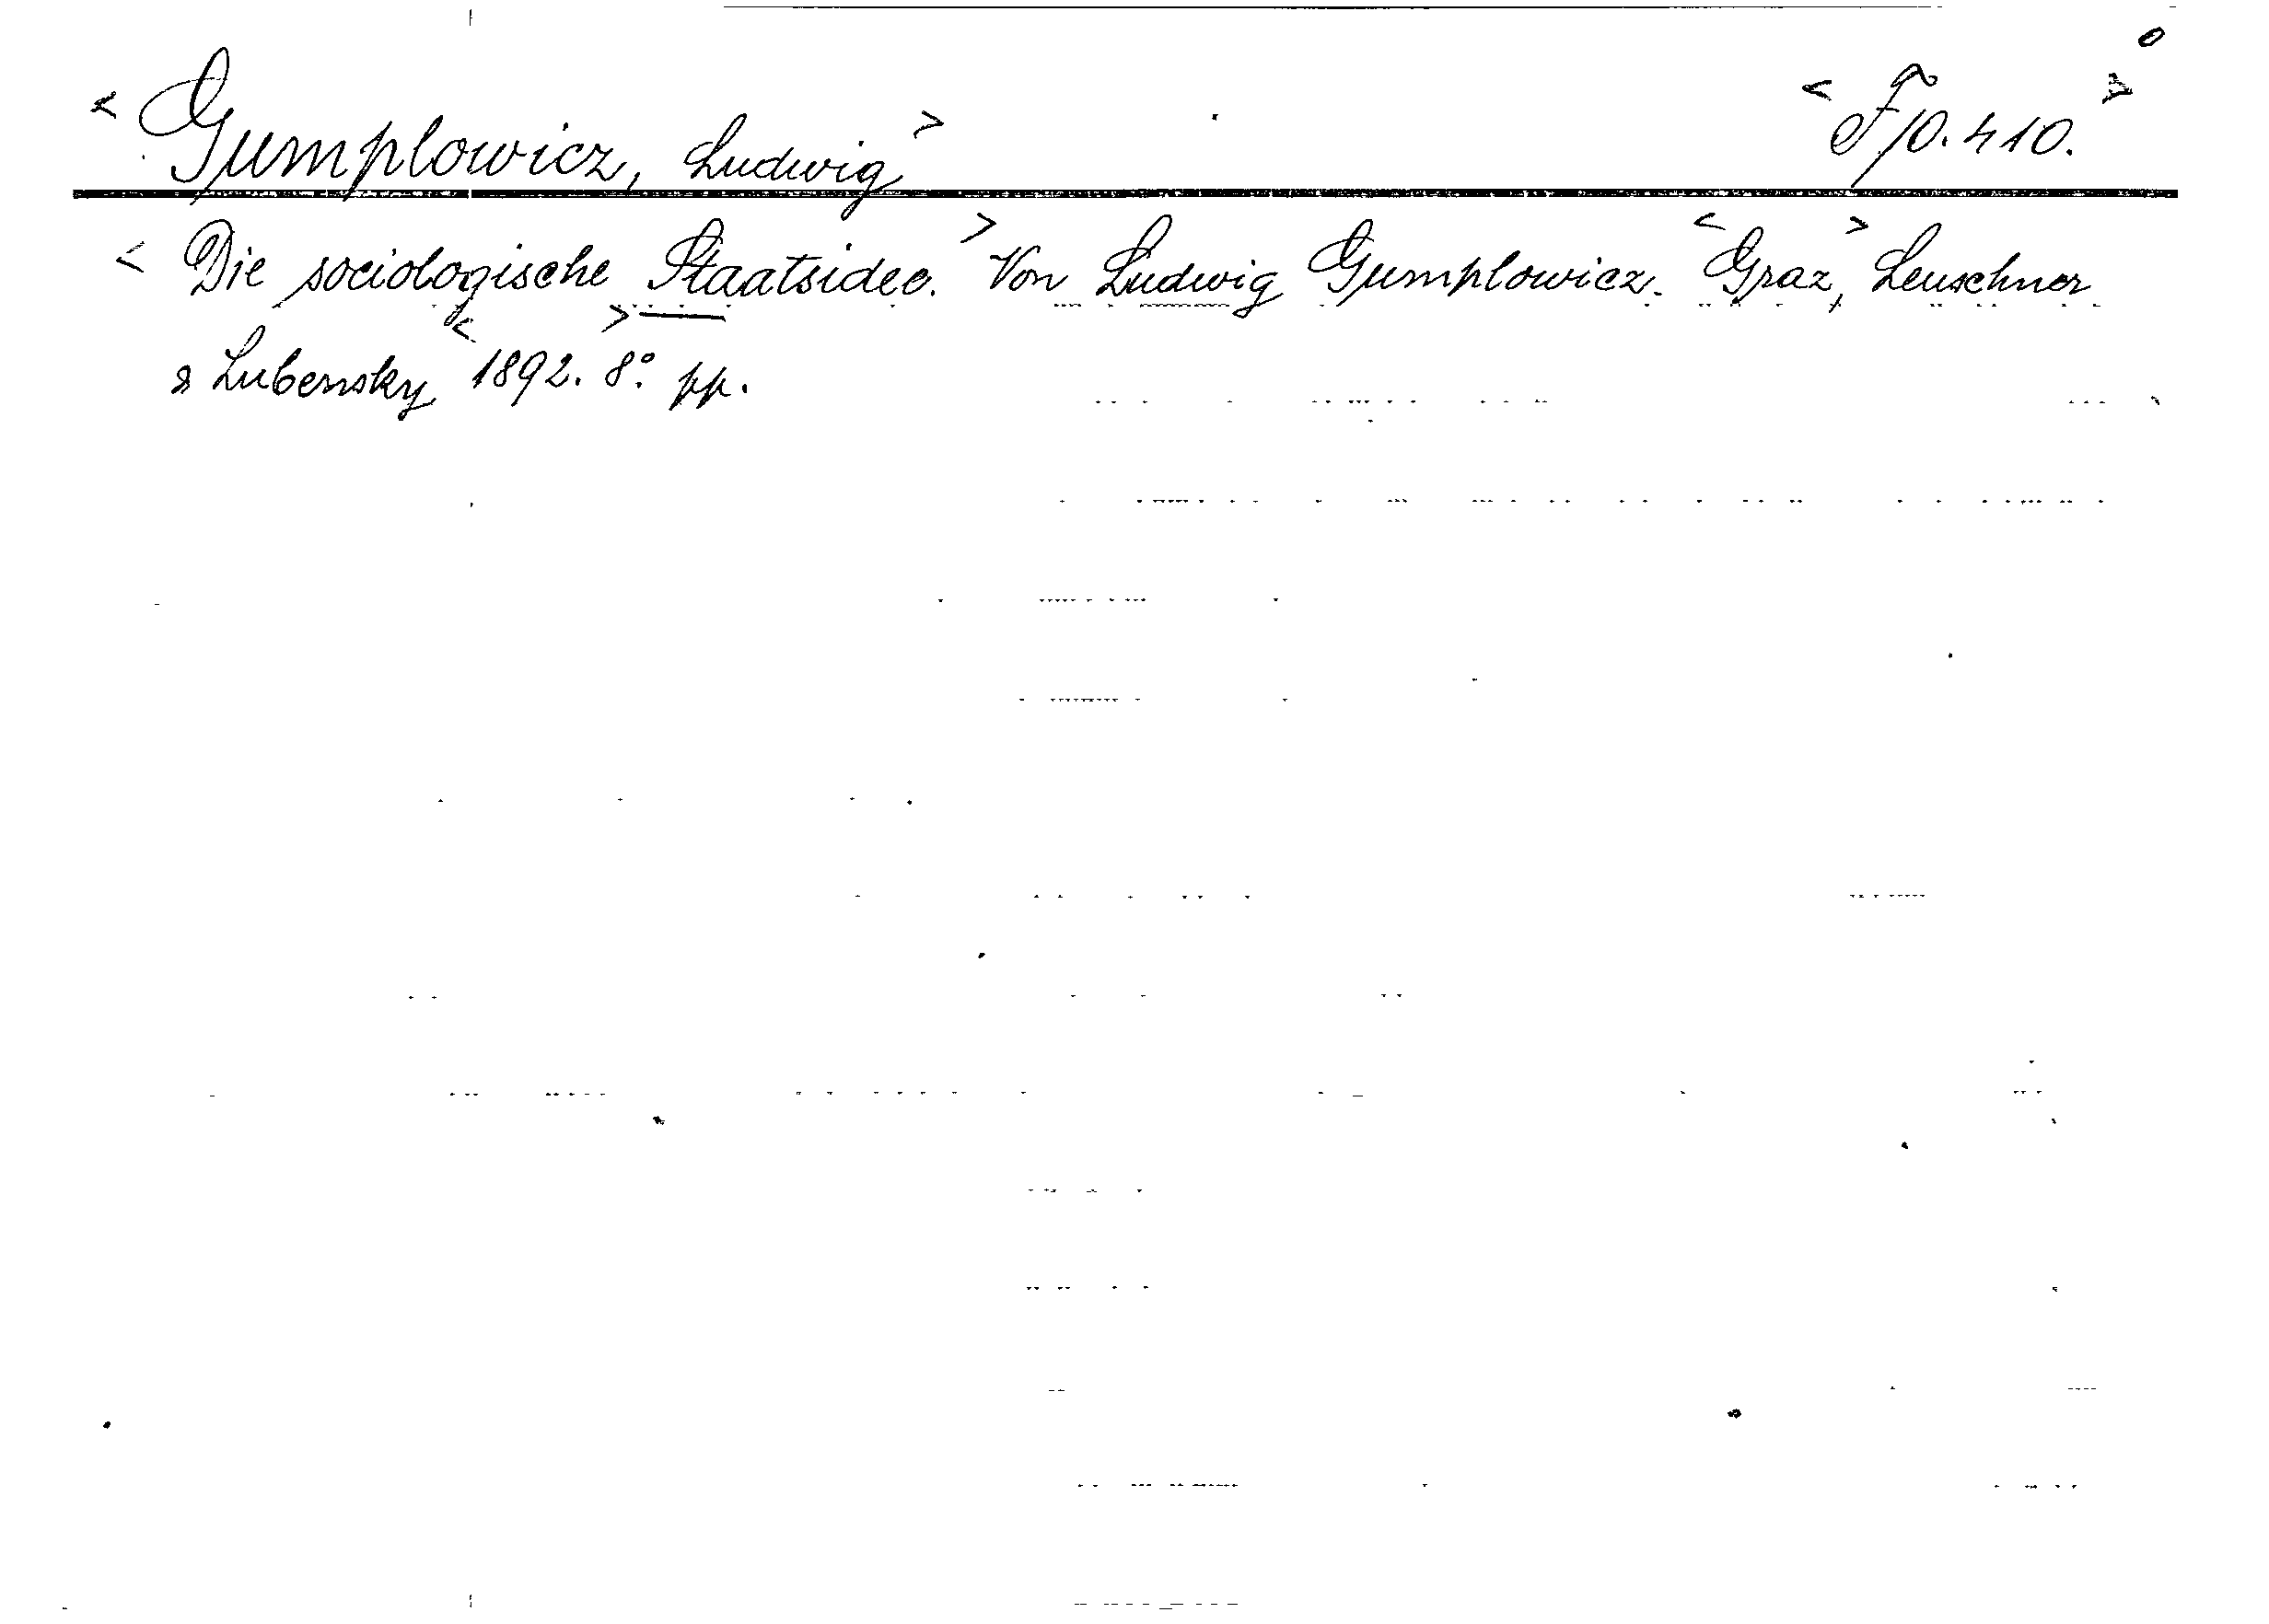 < Gumplowicz, Ludwig > < F 10.410. >
< Die sociologische Staatsidee. > Von Ludwig Gumplowicz. < Graz, > Leuschner
& Lubensky < 1892. > 8º. pp.